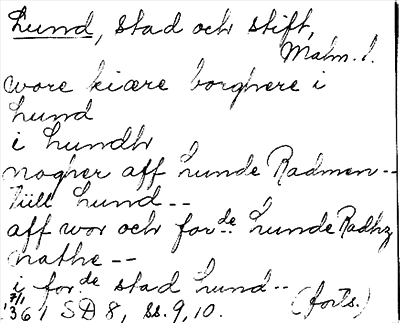 Lund, stad och stift,
Malm. l.
wore kiære borghere i
Lund
i Lundh
nogher aff Lunde Radmen--
Tiill Lund--
aff wor och for.de Lunde Radhz
nathe--
i for.de stad Lund--
1361 SD 8, ss. 9, 10. (forts.)